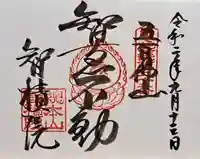 令和二年九月十三日
五百佛山
智恵不動
智積院